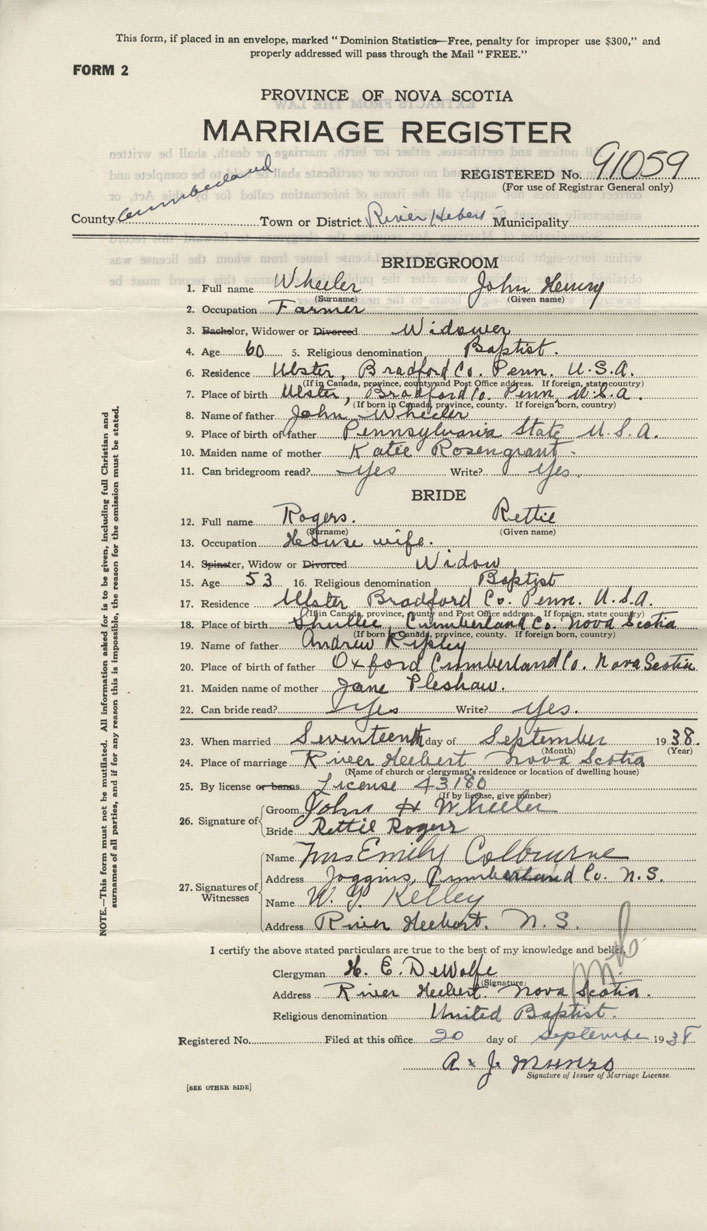 This form, if placed in an envelope, marked “Dominion Statistics—Free, penalty for improper use $300,” and
properly addressed will pass through the Mail “FREE.”
FORM 2
PROVINCE OF NOVA SCOTIA
MARRIAGE REGISTER
REGISTERED No. 91059
(For use of Registrar General only)
County Cumberland Town or District River Hebert Municipality
BRIDEGROOM
1. Full name Wheeler John Henry
(Surname) (Given name)
2. Occupation Farmer
3. Bachelor, Widower or Divorced Widower
4. Age 60 5. Religious denomination Baptist.
6. Residence Ulster, Bradford Co. Penn. U.S.A.
(If in Canada, province, county and Post Office address. If foreign, state country)
7. Place of birth Ulster, Bradford Co. Penn. U.S.A.
(If born in Canada, province, county. If foreign born, country)
8. Name of father John Wheeler
9. Place of birth of father Pennsylvania State U.S.A.
10. Maiden name of mother Katie Rosengrant.
11. Can bridegroom read? Yes Write? Yes.
BRIDE
12. Full name Rogers. Rettie
(Surname) (Given name)
13. Occupation House wife.
14. Spinster, Widow or Divorced Widow
15. Age 53 16. Religious denomination Baptist
17. Residence Ulster Bradford Co. Penn. U.S.A.
(If in Canada, province, county and Post Office address. If foreign, state country)
18. Place of birth Shullie, Cumberland Co. Nova Scotia
(If born in Canada, province, county. If foreign born, country)
19. Name of father Andrew Ripley
20. Place of birth of father Oxford Cumberland Co. Nova Scotia
21. Maiden name of mother Jane Pleshaw.
22. Can bride read? Yes Write? Yes.
23. When married Seventeenth day of September 1938.
(Month) (Year)
24. Place of marriage River Heebert Nova Scotia
(Name of church or clergyman's residence or location of dwelling house)
25. By license or banns License 43180
(If by license, give number)
26. Signature of
Groom John H Wheeler
Bride Rettie Rogers
27. Signatures of Witnesses
Name Mrs Emily Colbourne
Address Joggins, Cumberland Co. N.S.
Name W. P. Kelley
Address River Heebert. N.S.
I certify the above stated particulars are true to the best of my knowledge and belief,
Clergyman H. E. DeWolfe
(Signature)
Address River Heebert. Nova Scotia.
Religious denomination United Baptist.
Registered No. Filed at this office 20 day of September 1938
A. J. Munro
Signature of Issuer of Marriage License.
[SEE OTHER SIDE]
NOTE.—This form must not be mutilated. All information asked for is to be given, including full Christian and
surnames of all parties, and if for any reason this is impossible, the reason for the omission must be stated.